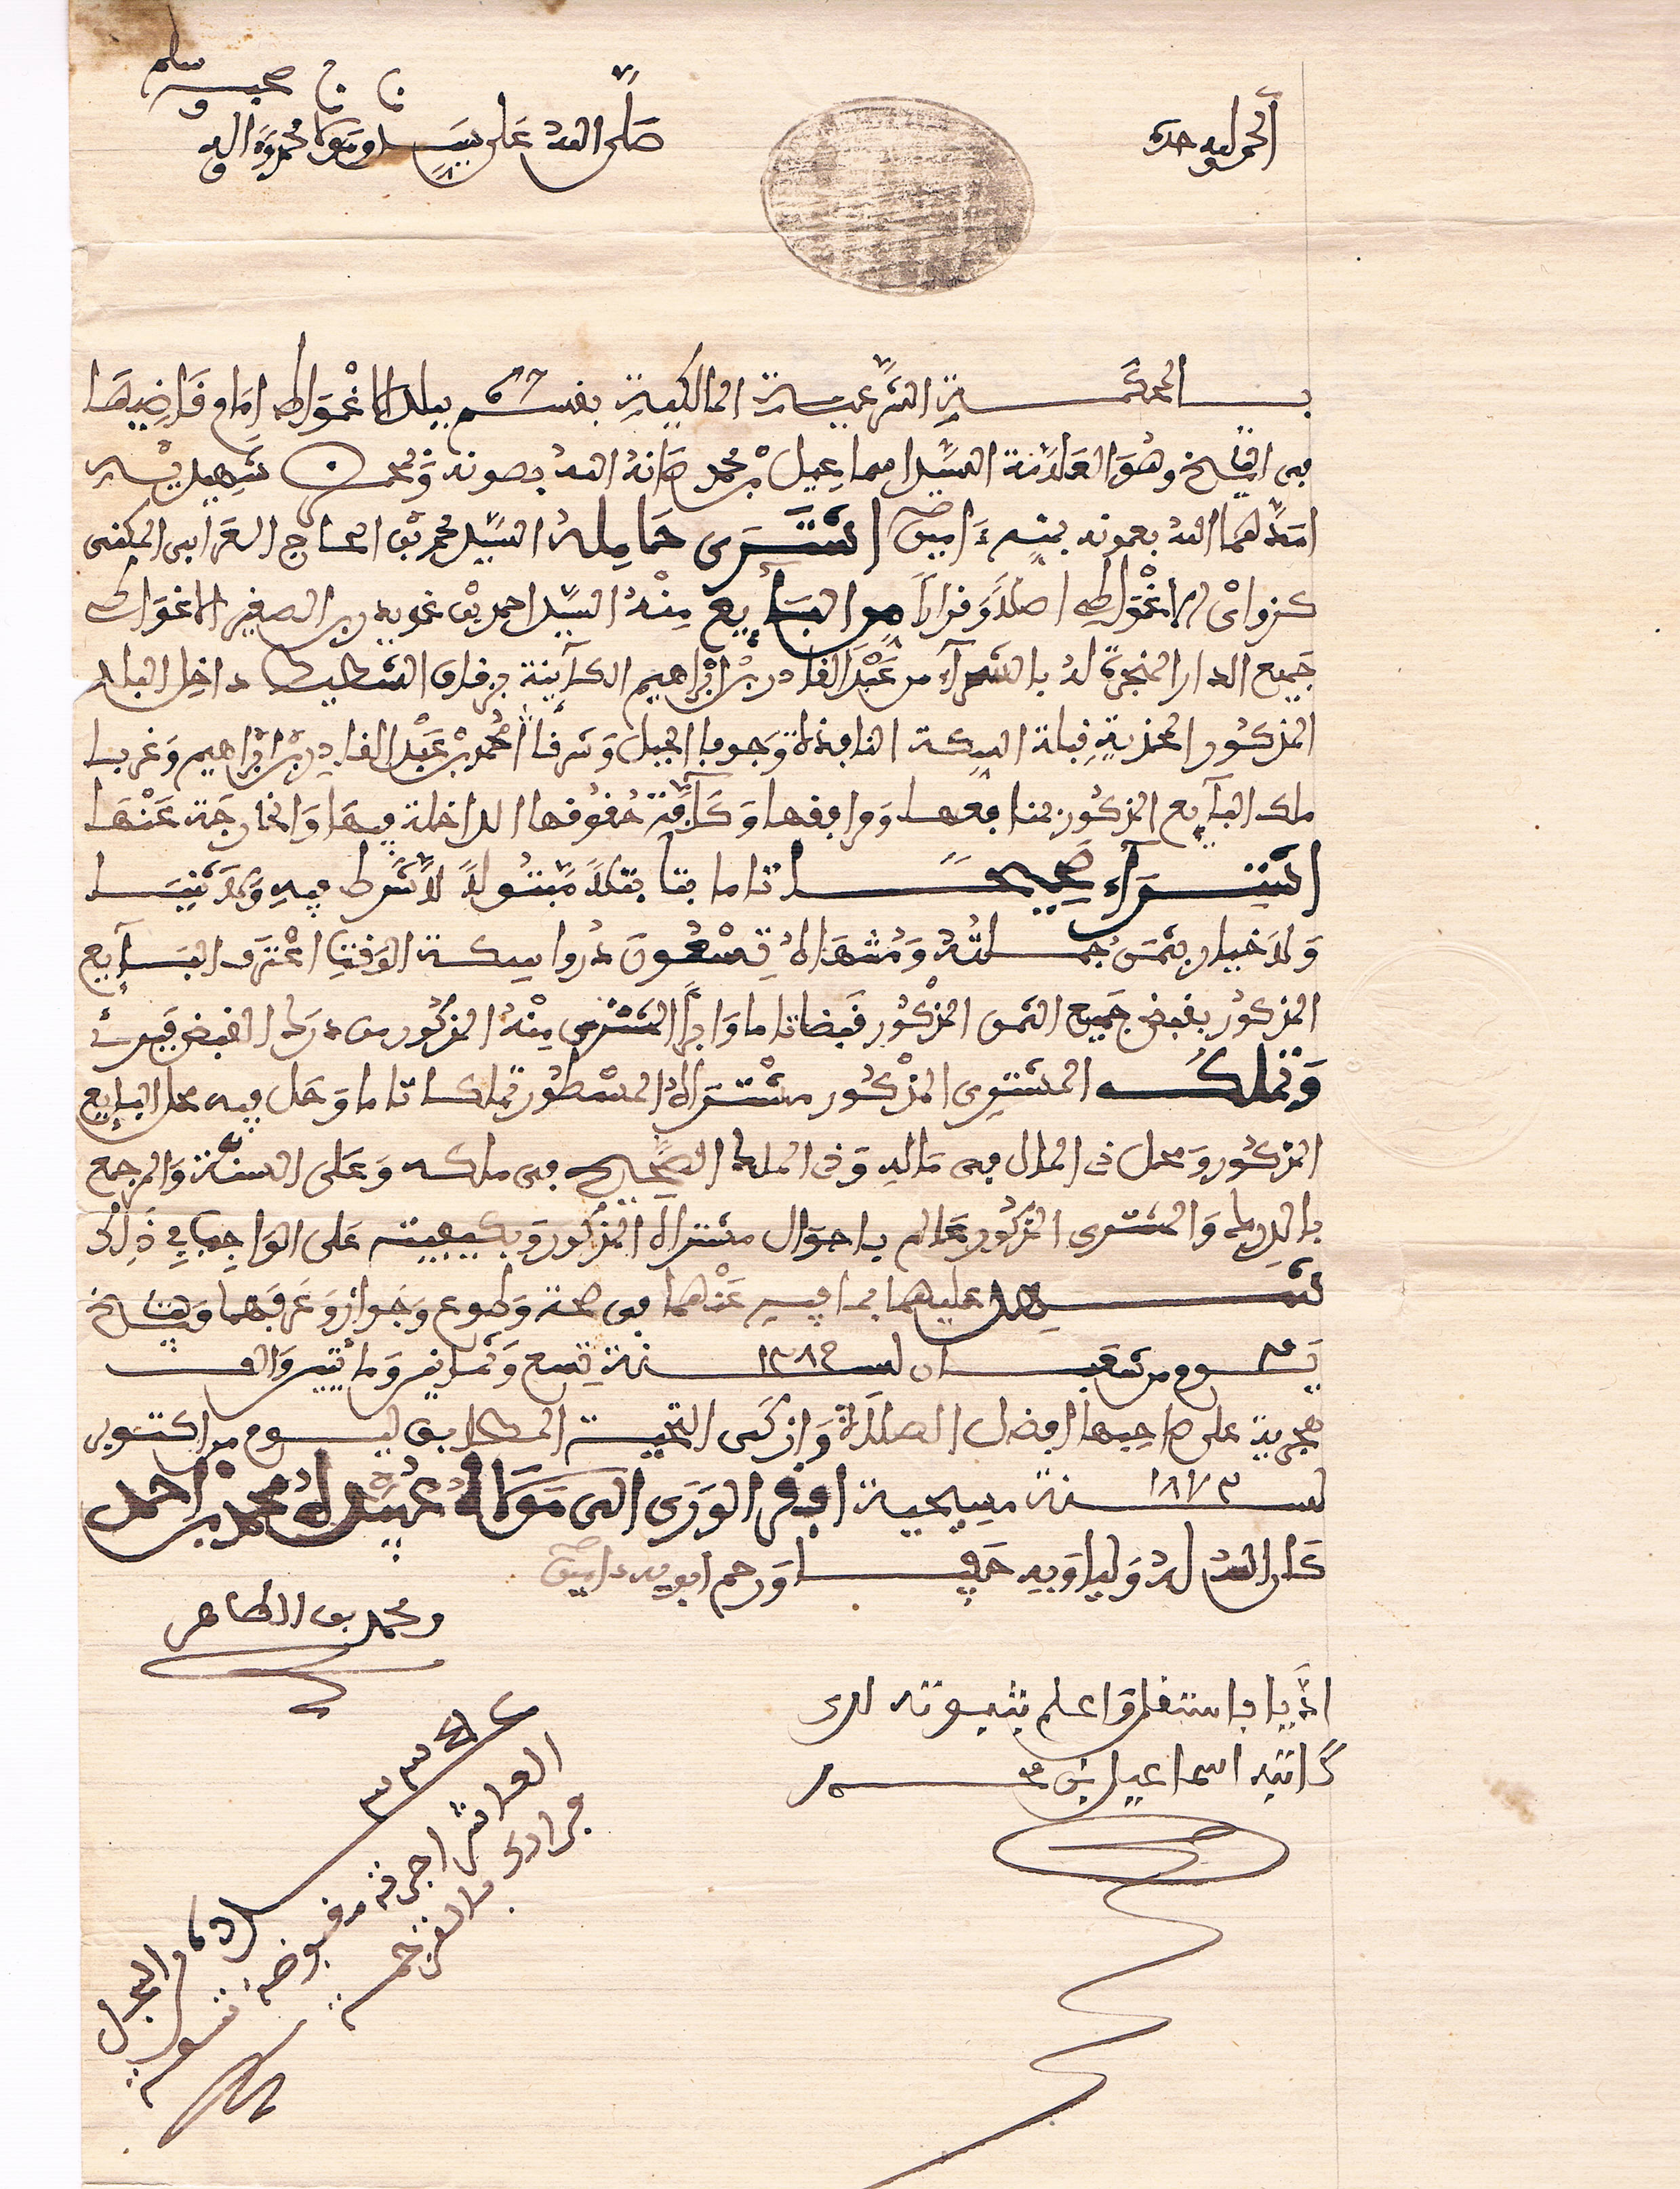 الحمد لله وحده
صلى الله على سيدنا ومولانا محمد وآله وصحبه وسلم
بالمحكمة الشرعية المالكية بقسم بلد الاغواط امام قاضيها
في التاريخ وهو العلامة السيد اسماعيل بن محمد صانه الله بصونه وبمحضر شهيديه
امدهما الله بعونه بمنه ءامين اشترى حامله السيد محمد بن الحاج العرابي المكنى
كزواي الاغواطي اصلا وقرارا من البايع منه السيد احمد بن عمويه بن الصغير الاغواطي
جميع الدار المنجرة له بالشراء من عبد القادر بن ابراهيم الكآينة بزقاق الشطيط داخل البلد
المذكور المحذية قبلة السكة النافذة وجوفا الجبل وشرفا امحمد بن عبد القادر بن ابراهيم وغربا
ملك البآيع المذكور بمنافعها ومرافقها وكآفة حقوقها الداخلة فيها والخارجة عنها
اشترآء صحيحا تاما بتا بتلا مبتولا لا شرط فيه ولا ثنيا
ولا خيار بثمن جملته ومنتهاه تسعون دورا سكة الوقت اعترف البآيع
المذكور بقبض جميع الثمن المذكور قبضا تاما وابرأ المشترى منه المذكور من درك القبض فبرئ
وتملك المشترى المذكور مشتراه المسطور تملكا تاما وحل فيه محل البايع
المذكور ومحل ذى المال في ماله وذى الملك الصحيح في ملكه وعلى السنة والمرجع
بالدرك والمشترى المذكور عالم باحوال مشتراه المذكور وبكيفيته على الواجب في ذلك
شهد عليهما بما فيه عنهما في صحة وطوع وجواز وعرفهما وبتاريخ
يوم من شعبان لسنة ١٢٨٩ تسع وثمانين ومائتين والف
هجرية على صاحبها افضل الصلاة وازكى التحية المطابق ليوم من اكتوبر
لسنة ١٨٧٢ مسيحية افقر الورى الى مولاه عبيده محمد بن احمد
كان الله له وليا وبه حفيا ورحم ابويه ءامين
ومحمد بن الطاهر
اديا باستقل واعلم بثبوته لدى
كاتبه اسماعيل بن محمد